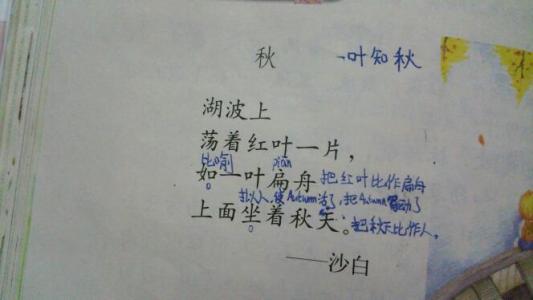 秋 一叶知秋
湖波上
荡着红叶一片，
比喻 piān
如一叶扁舟 把红叶比作扁舟
拟人，使Autumn活了，把Autumn写动了
上面坐着秋天。 把秋天比作人。
——沙白